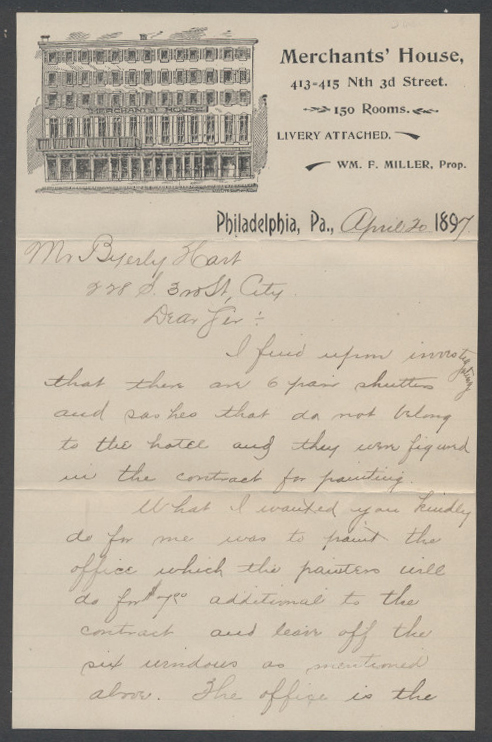 MERCHANTS HOUSE
Merchants' House,
413-415 Nth 3d Street.
150 Rooms.
LIVERY ATTACHED.
WM. F. MILLER, Prop.
Philadelphia, Pa., April 20 1897
Mr Byerly Hart
228 S. 3rd St, City.
Dear Sir :-
I find upon investigating
that there are 6 pair shutters
and sashes that do not belong
to the hotel and they were figured
in the contract for painting.
What I wanted you kindly
do for me was to paint the
office which the painters will
do for $7.50 additional to the
contract and leave off the
six windows as mentioned
above. The office is the